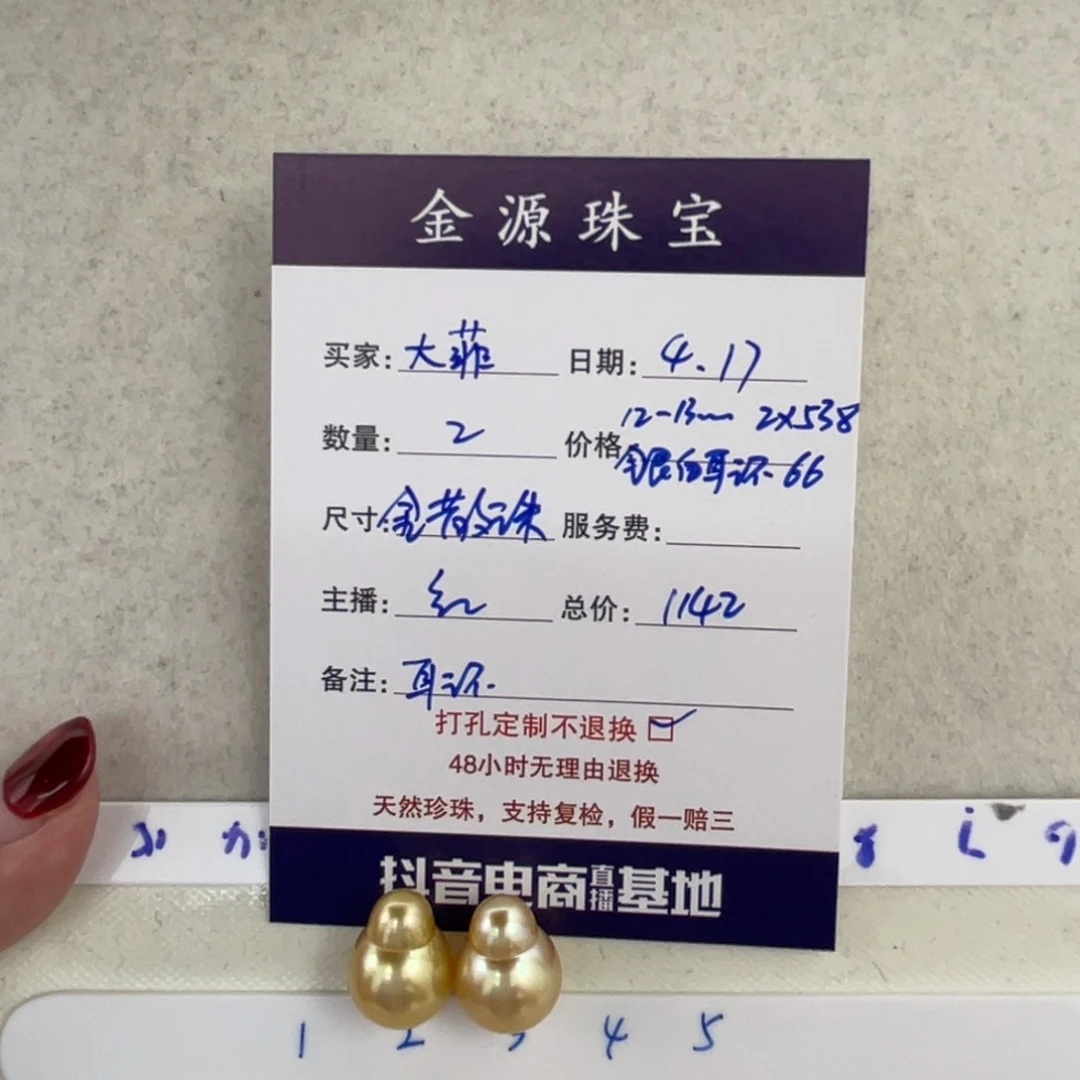 金源珠宝
买家: 大菲 日期: 4.17
数量: 2 价格 12-13mm 2x538
银白耳环.66
尺寸: 金散珠 服务费:
主播: 红 总价: 1142
备注: 耳环.
打孔定制不退换
48小时无理由退换
天然珍珠，支持复检，假一赔三
抖音电商直播基地
1 2 3 4 5